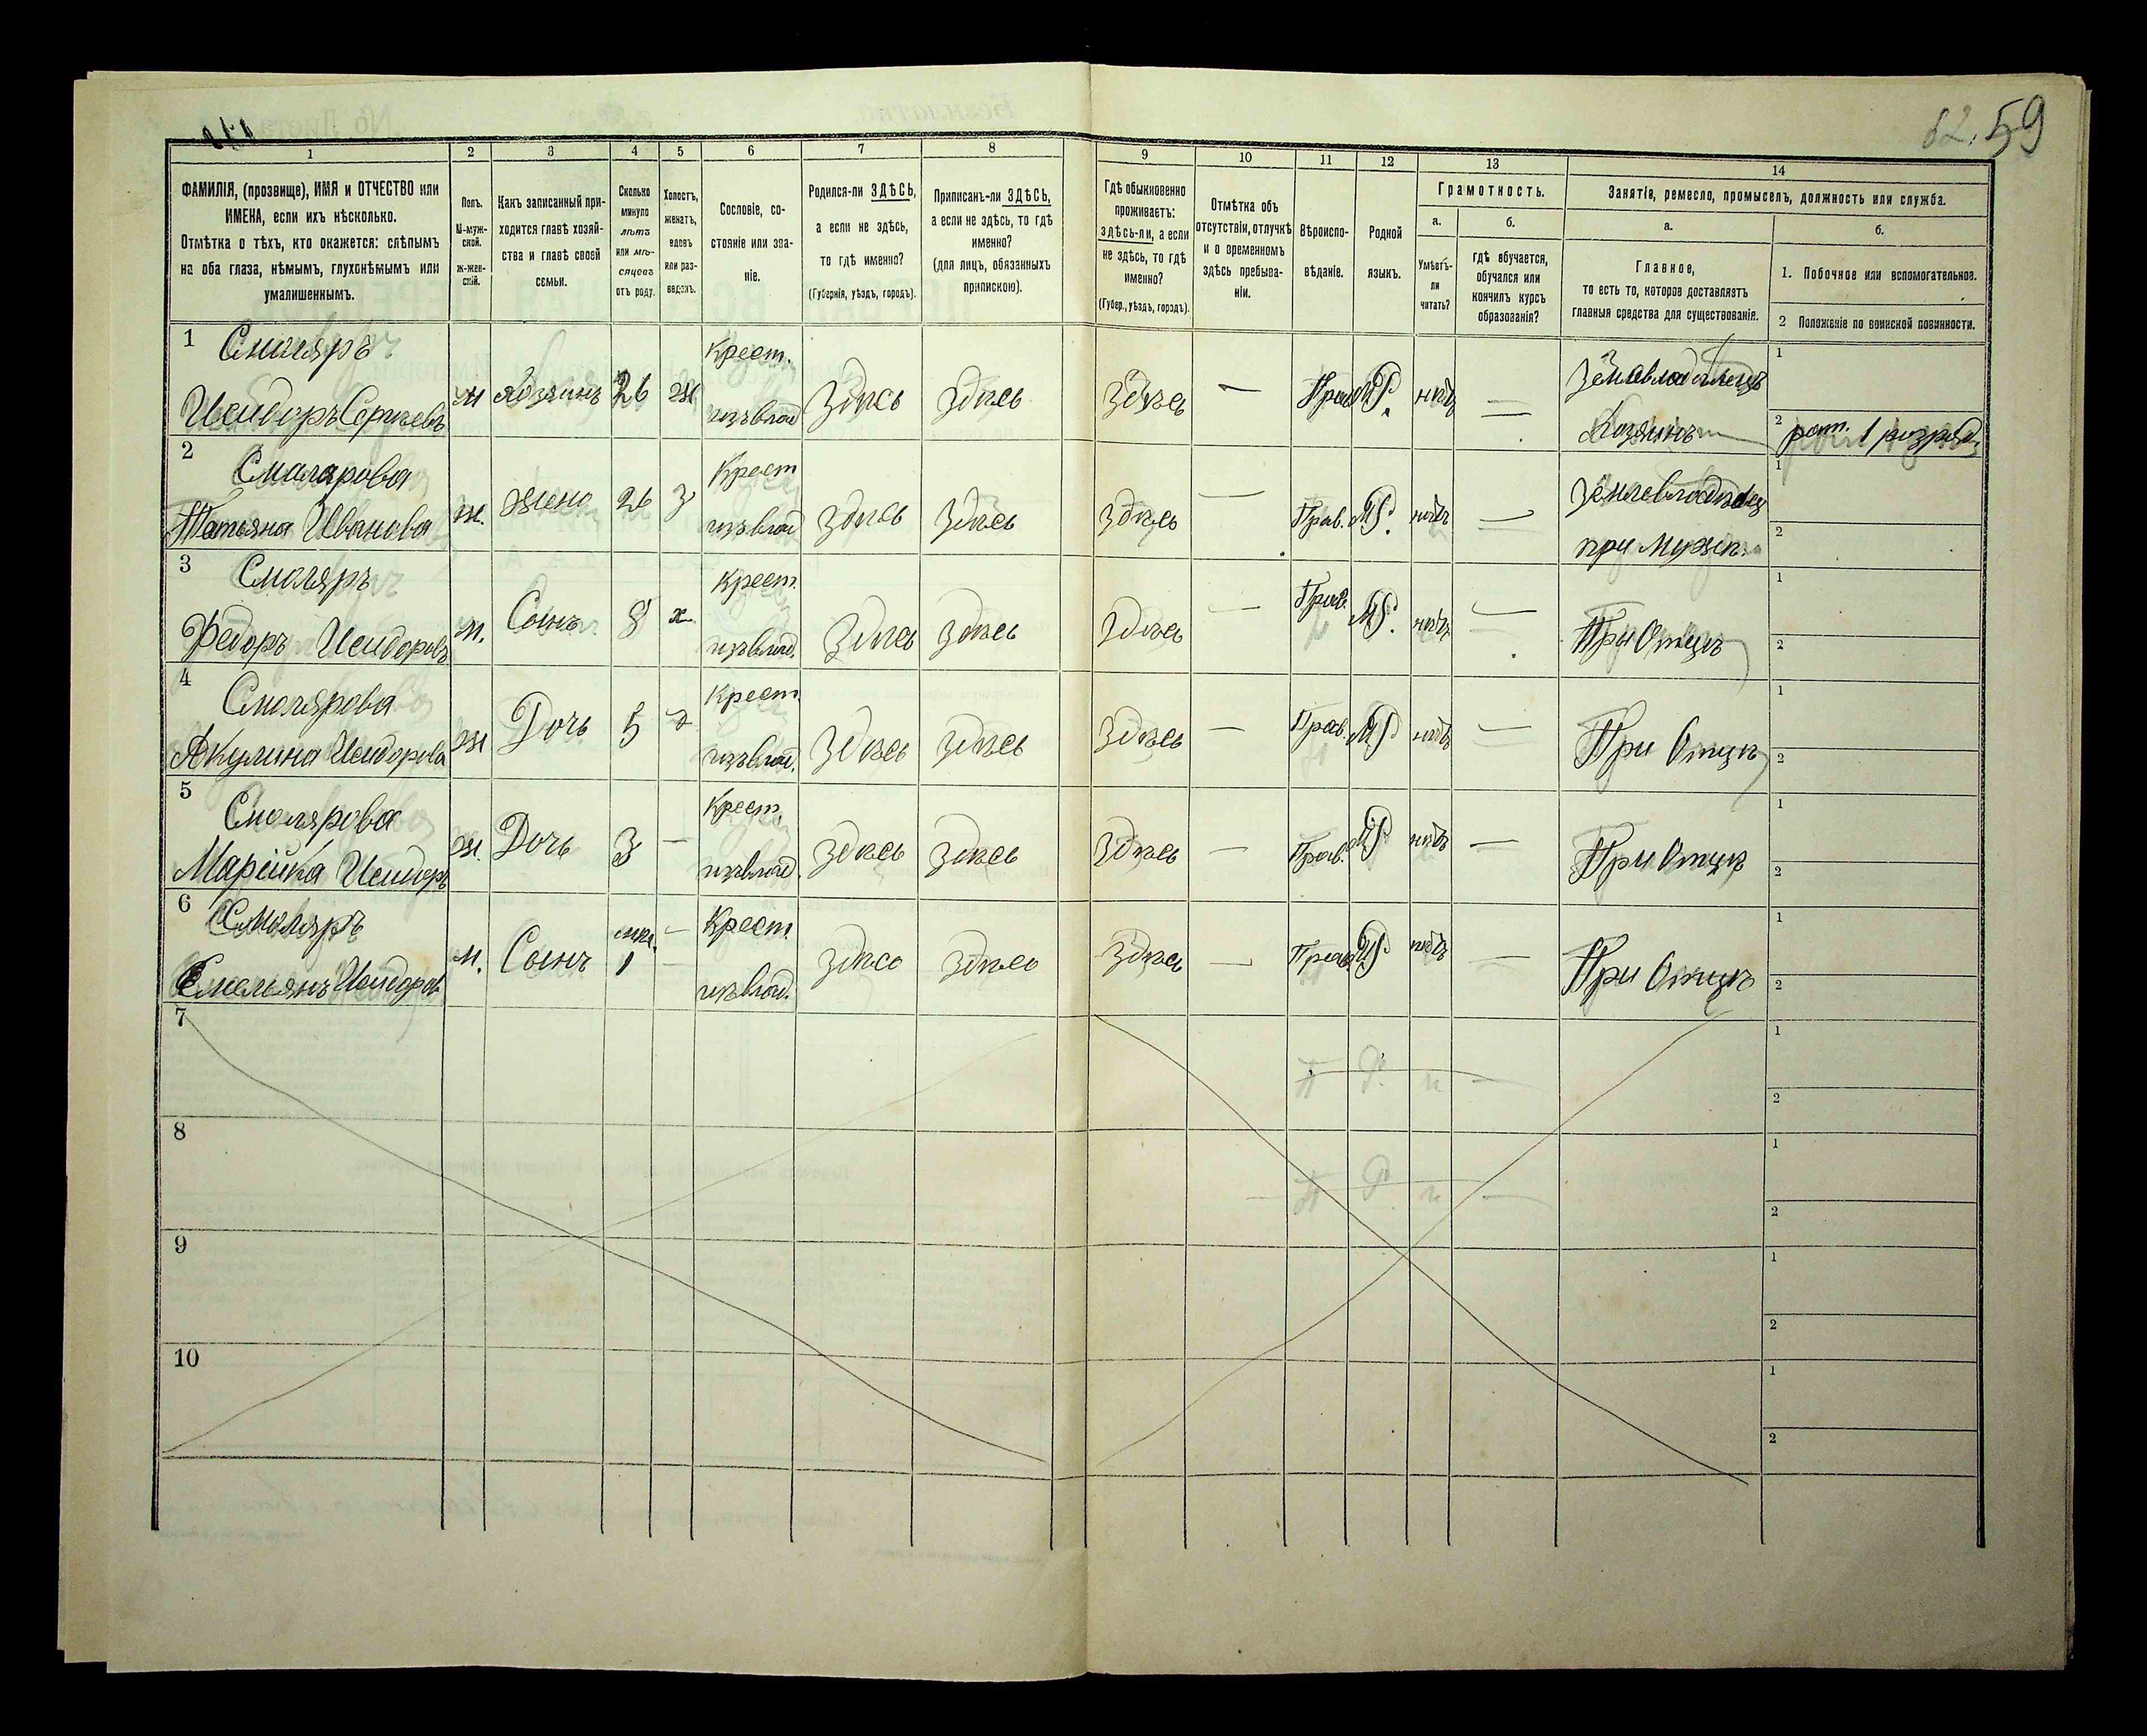 62. 59
1 2 3 4 5 6 7 8 9 10 11 12 13 14
ФАМИЛІЯ, (прозвище), ИМЯ и ОТЧЕСТВО или
ИМЕНА, если ихъ нѣсколько.
Отмѣтка о тѣхъ, кто окажется: слѣпымъ
на оба глаза, нѣмымъ, глухонѣмымъ или
умалишеннымъ.
Полъ.
М-муж-
ской.
ж-жен-
скій.
Какъ записанный при-
ходится главѣ хозяй-
ства и главѣ своей
семьи.
Сколько
минуло
лѣтъ
или мѣ-
сяцевъ
отъ роду.
Холостъ,
женатъ,
вдовъ
или раз-
веденъ.
Сословіе, со-
стояніе или зва-
ніе.
Родился-ли ЗДѢСЬ,
а если не здѣсь,
то гдѣ именно?
(Губернія, уѣздъ, городъ).
Приписанъ-ли ЗДѢСЬ,
а если не здѣсь, то гдѣ
именно?
(для лицъ, обязанныхъ
припискою).
Гдѣ обыкновенно
проживаетъ:
здѣсь-ли, а если
не здѣсь, то гдѣ
именно?
(Губер., уѣздъ, городъ).
Отмѣтка объ
отсутствіи, отлучкѣ
и о временномъ
здѣсь пребыва-
ніи.
Вѣроиспо-
вѣданіе.
Родной
языкъ.
Грамотность.
а.
Умѣетъ-
ли
читать?
б.
гдѣ обучается,
обучался или
кончилъ курсъ
образованія?
Занятія, ремесло, промыселъ, должность или служба.
а.
Главное,
то есть то, которое доставляетъ
главныя средства для существованія.
б.
1. Побочное или вспомогательное.
2 Положеніе по воинской повинности.
1 Смоляръ Крест. Землевладѣлецъ 1
Исидоръ Сергѣевъ м хозяинъ 26 ж изъ влад Здѣсь Здѣсь Здѣсь — Прав М.Р. нѣтъ — Хозяинъ 2 рат. 1 разряд.
2 Смалярова Крест Землевладѣлец 1
Татьяна Иванова ж. жена 26 з изъ влад Здѣсь Здѣсь Здѣсь — Прав. М.Р. нѣтъ — при мужѣ 2
3 Смоляръ Крест. 1
Федоръ Исидоровъ м. Сынъ 8 х изъ влад. Здѣсь Здѣсь Здѣсь — Прав. М.Р. нѣтъ — При Отцѣ 2
4 Смолярова Крест. 1
Акулина Исидорова ж Дочь 5 изъ влад. Здѣсь Здѣсь Здѣсь — Прав. М.Р. нѣтъ — При Отцѣ 2
5 Смолярова Крест. 1
Марійка Исидоръ ж. Дочь 3 — изъ влад. Здѣсь Здѣсь Здѣсь — Прав. М.Р. нѣтъ — При Отцѣ 2
6 Смоляръ мѣс. — Крест. 1
Емельянъ Исидоров м. Сынъ 1 изъ влад. Здѣсь Здѣсь Здѣсь — Прав М.Р. нѣтъ — При Отцѣ 2
7 1
П Р. н —
2
8 1
— П Р н —
2
9 1
2
10 1
2